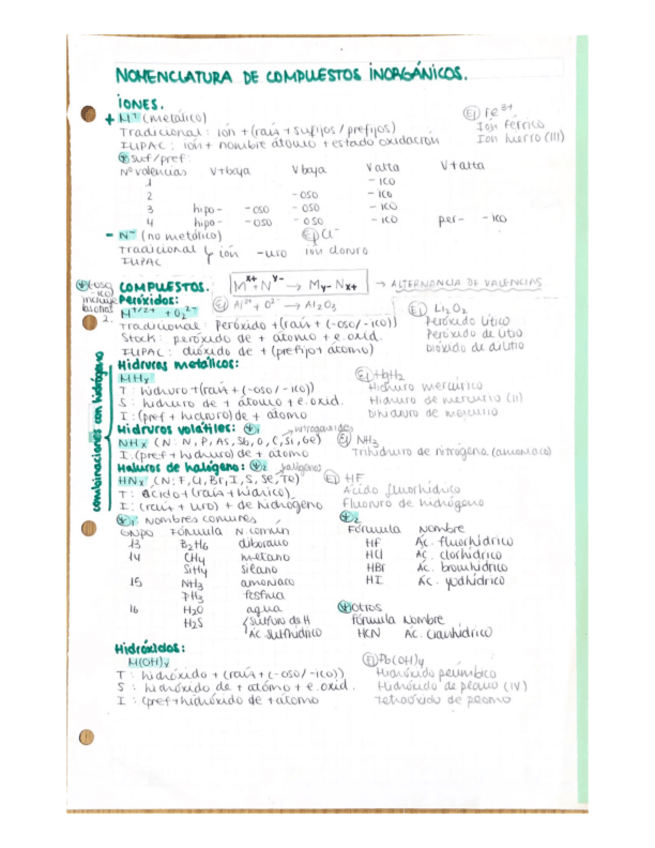 NOMENCLATURA DE COMPUESTOS INORGÁNICOS.
IONES.
+ M⁺ (metálico)
Ej Fe³⁺
Tradicional: ión + (raíz + sufijos / prefijos)
Ión férrico
IUPAC: ión + nombre átomo + estado oxidación
Ion hierro (III)
suf/pref:
Nº valencias V+baja V baja V alta V+alta
1 -ICO
2 -OSO -ICO
3 hipo- -OSO -OSO -ICO
4 hipo- -OSO -OSO -ICO per- -ICO
- N⁻ (no metálico) Ej Cl⁻
Tradicional y ión -uro ión cloruro
IUPAC
COMPUESTOS. Mˣ⁺ + Nʸ⁻ → My-Nx+ → ALTERNANCIA DE VALENCIAS
Peróxidos: Ej Al³⁺ + O²⁻ → Al₂O₃
M⁺/²⁺ + O₂²⁻
Ej Li₂O₂
Tradicional: Peróxido + (raíz + (-oso/-ico))
Peróxido lítico
Stock: peróxido de + átomo + e.oxid.
Peróxido de litio
IUPAC: dióxido de + (prefijo + átomo)
Dióxido de dilitio
combinaciones con hidrógeno
Hidruros metálicos:
MHy
Ej HgH₂
T: hidruro + (raíz + (-oso/-ico))
Hidruro mercúrico
S: hidruro de + átomo + e.oxid.
Hidruro de mercurio (II)
I: (pref + hidruro) de + átomo
Dihidruro de mercurio
Hidruros volátiles: 1 → nitrogenoides
NHx (N: N, P, As, Sb, O, C, Si, Ge) Ej NH₃
I: (pref + hidruro) de + átomo
Trihidruro de nitrógeno (amoniaco)
Haluros de halógeno: 2 → halógenos
HNx (N: F, Cl, Br, I, S, Se, Te) Ej HF
T: ácido + (raíz + hídrico)
Ácido fluorhídrico
I: (raíz + uro) + de hidrógeno
Fluoruro de hidrógeno
1 Nombres comunes
Grupo Fórmula N. común
13 B₂H₆ diborano
14 CH₄ metano
SiH₄ silano
15 NH₃ amoniaco
PH₃ fosfina
16 H₂O agua
H₂S {Sulfuro de H
Ác. sulfhídrico
2
Fórmula Nombre
HF Ác. fluorhídrico
HCl Ác. clorhídrico
HBr Ác. bromhídrico
HI Ác. yodhídrico
otros
Fórmula Nombre
HCN Ác. cianhídrico
Hidróxidos:
M(OH)y
Ej Pb(OH)₄
T: hidróxido + (raíz + (-oso/-ico))
Hidróxido plúmbico
S: hidróxido de + átomo + e.oxid.
Hidróxido de plomo (IV)
I: (pref + hidróxido de + átomo